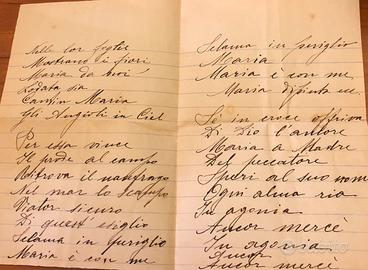 Nelle lor foglie
Mostrano i fiori
Maria da noi
Lodata sia
Cantin Maria
Gli Angioli in Ciel
Per essa vince
Il prode al campo
Ritrova il naufrago
Nel mar lo scampo
Viator sicuro
Di quest' esiglio
Selama in periglio
Maria è con me
Selama in periglio
Maria
Maria è con me
Maria dipinta
Se in croce offriva
Di Dio l'amore
Maria a Madre
Del peccatore
Speri al suo nome
Ogni alma ria
In agonia
Ancor mercè
In agonia
Ancor
Ancor mercè
subito